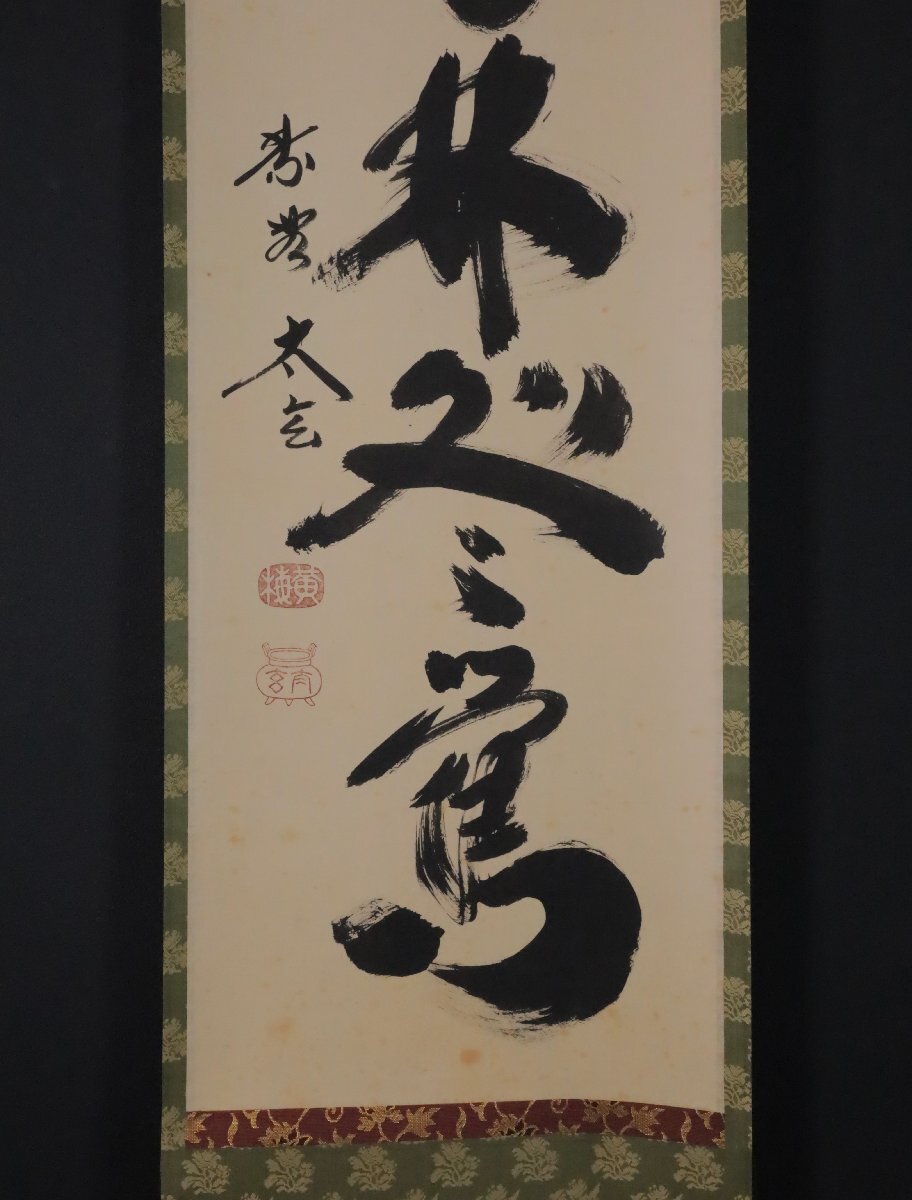 林処々鶯
紫野 太玄
黄梅